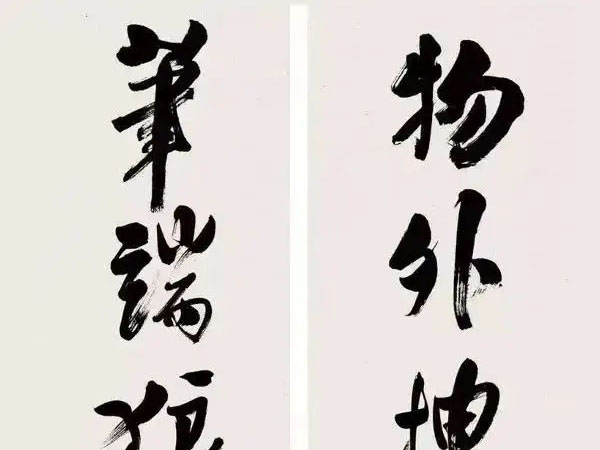 物外抽
筆端狼